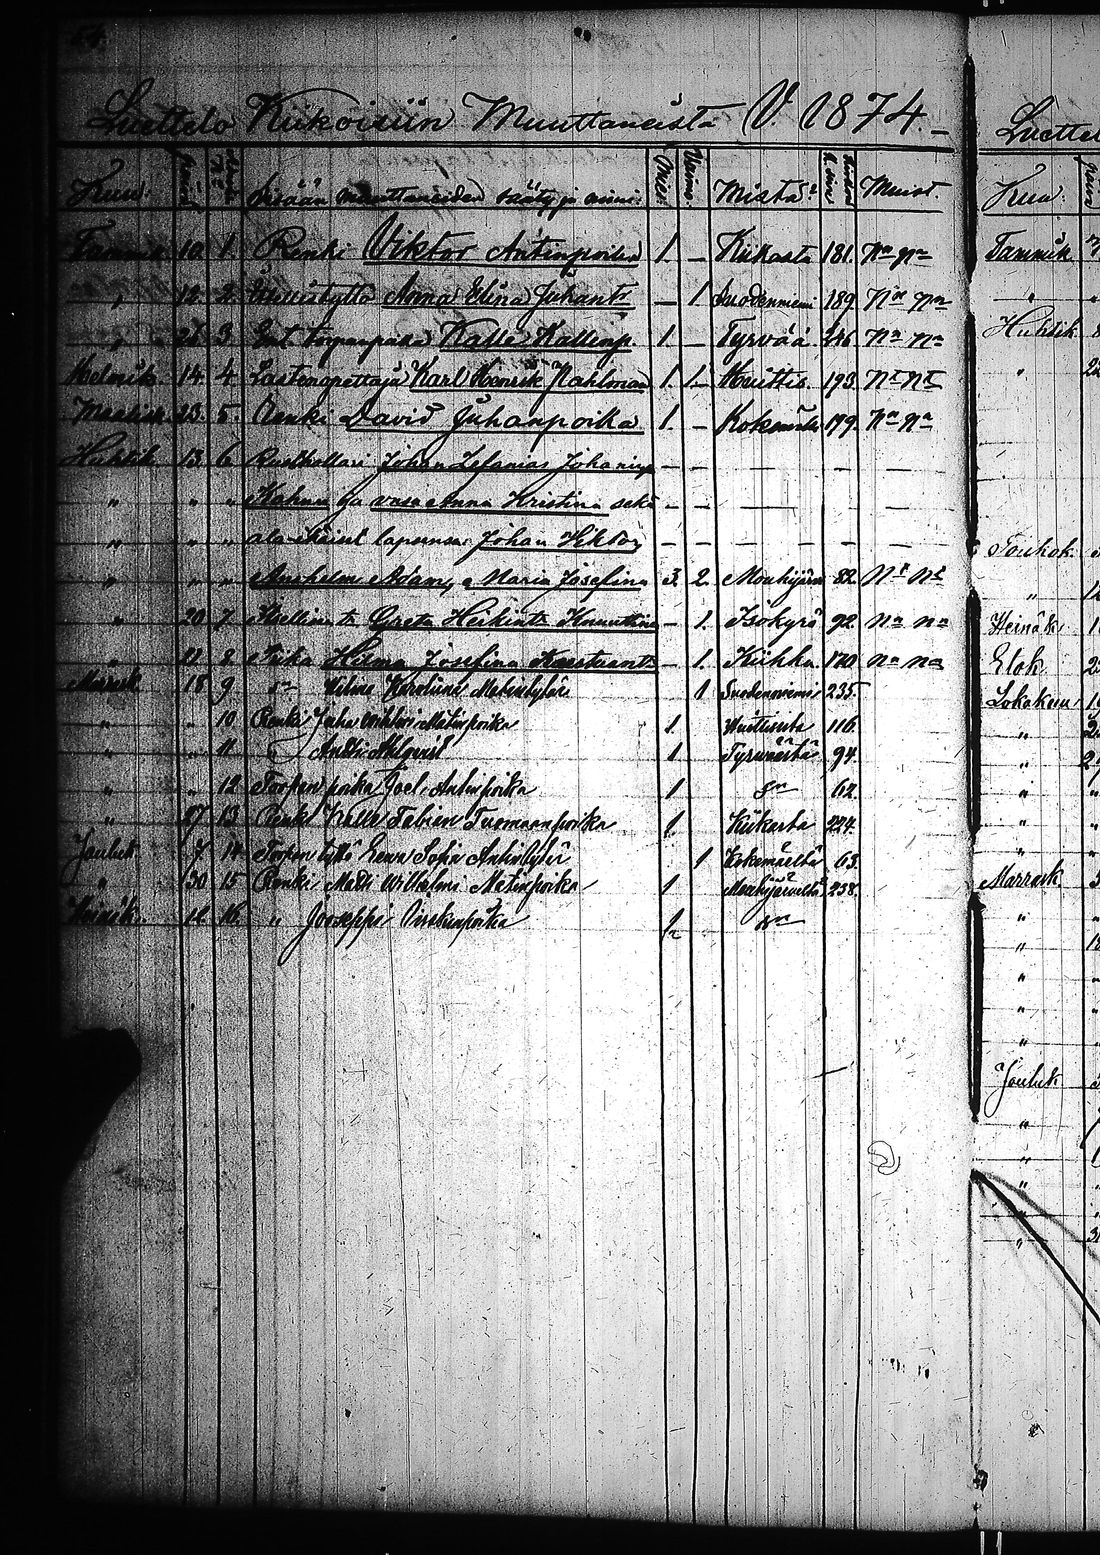 54.
Luettelo Kiikoisiin Muuttaneista V. 1874.
Kuu. Sisään muuttaneiden sääty ja nimi. Mies. Vaimo. Mistä? Muist.
Tammik. 10. 1. Renki Viktor Antinpoika 1. — Kiikasta 181. Na Na
" 12. 2. Anna Elina Juhant. — 1. Suodenniemi 189. Na Na
" 26. 3. Ent. torpanpoika Kalle Kallenp. 1. — Tyrvää 246. Na Na
Helmik. 14. 4. Lastenopettaja Karl Henrik Nahlman 1. 1. Huittis. 193. Nt Nt
Maalisk. 13. 5. Renki David Juhanpoika 1. — Kokemäki 179. Na Na
Huhtik. 13. 6. Rusthollari Johan Sefanias Johaninp. — — — — —
" " " Kahan ja vaimo Anna Kristina sekä — — — — —
" " " ala-ikäiset lapsensa: Johan Hiktor — — — — —
" " " Anshelm Adam, Maria Josefina 3. 2. Mouhijärvi 82. Nt Nt
" 20. 7. Greta Heikint. — 1. Isokyrö 92. Na Na
" 22. 8. Piika Hilma Josefina — 1. Kiikka 170. Na Na
Marrask. 18. 9. Do Vilina Karoliina Matintytär 1 Suodenniemi 235.
" " 10 Renki Juha Wilhlmi Matinpoika 1 Huittisista 116.
" " 11 Antti Ahlqvist 1 Tyrväästä 94.
" " 12 Torpan poika Joel Antinpoika 1 Do 62.
" 27 13 Renki Kalle Fabian Tuomaanpoika 1. Kiikasta 224.
Jouluk. 7 14 Torpan tyttö Eeva Sofia Antintytär 1 Kokemäeltä 63.
" 30 15 Renki Matti Wilhelmi Matinpoika 1 Mouhijärveltä 238.
Heinäk. 12 16. " Jooseppi 1 Do
Luettel
Kuu.
Tammik.
"
Huhtik.
"
Toukok.
"
Heinäk.
Elok.
Lokakuu
"
"
"
"
"
Marrask.
"
"
"
"
"
Jouluk.
"
"
"
"
"